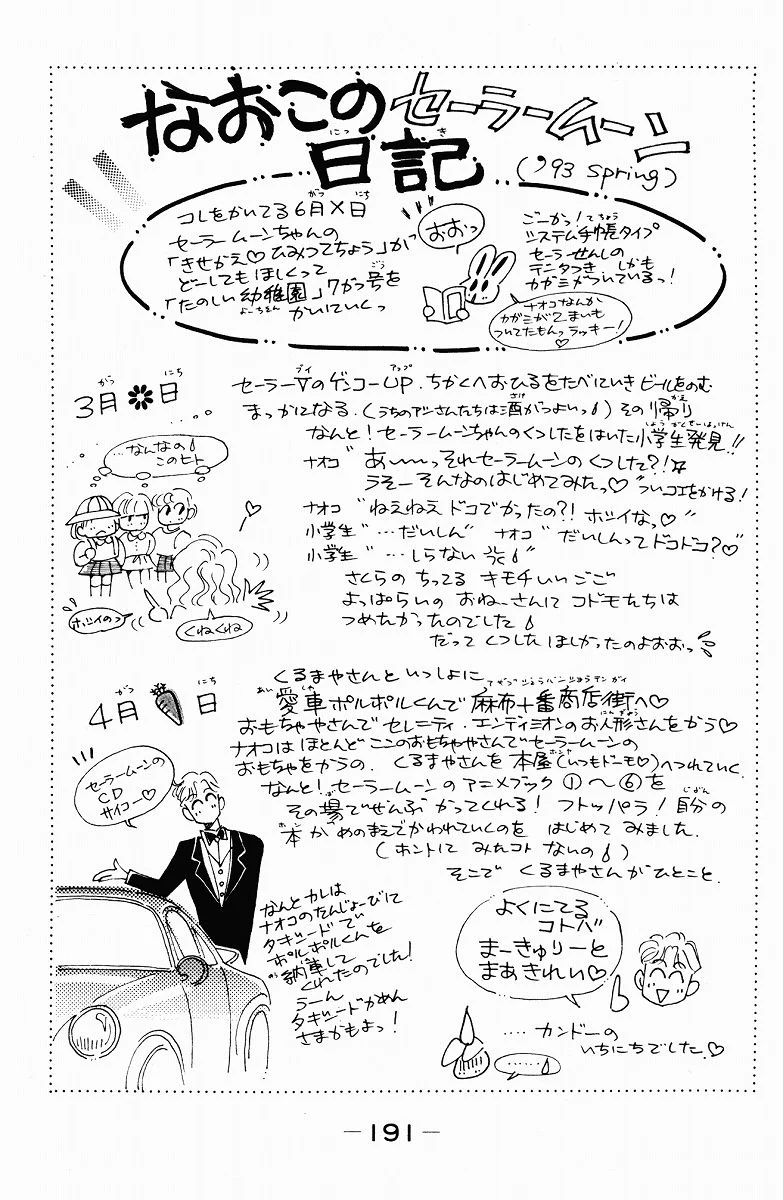 なおこのセーラームーン
日記
('93 Spring)
コレをかいてる6月×日
セーラームーンちゃんの
「きせかえ♡ひみつてちょう」が
どーしてもほしくって
「たのしい幼稚園」7がつ号を
かいにいくっ
おおっ
ごーかっ!
システム手帳タイプ
セーラーせんしの
データつき しかも
カガミがついているっ!
ナオコなんか
カガミが2まいも
ついてたもんっラッキー!
♡
3月✽日
セーラーVのゲンコーUP.ちかくへおひるをたべにいきビールをのむ
まっかになる.(うちのアシさんたちは酒がつよいっ)その帰り
なんと!セーラームーンちゃんのくつしたをはいた小学生発見!!
ナオコ〝あ〜〜っそれセーラームーンのくつした?!
うそーそんなのはじめてみたっ♡〟ついコエをかける!
ナオコ〝ねえねえドコでかったの?!ホシイなっ♡〟
小学生〝…だいしん〟ナオコ〝だいしんってドコドコ?♡〟
小学生〝…しらない〟
さくらのちってるキモチいいごご
よっぱらいのおねーさんにコドモたちは
つめたかったのでした
だってくつしたほしかったのよおおっ
…なんなの
このヒト
ホシイのっ
くねくね
4月 日
くるまやさんといっしょに
愛車ポルポルくんで麻布十番商店街へ♡
おもちゃやさんでセレニティ.エンディミオンのお人形さんをかう♡
ナオコはほとんどここのおもちゃやさんでセーラームーンの
おもちゃをかうの. くるまやさんを本屋(いつもドーモ♡)へつれていく.
なんと!セーラームーンのアニメブック①〜⑥を
その場でぜんぶかってくれる!フトッパラ!自分の
本がめのまえでかわれていくのをはじめてみました.
(ホントにみたコトないの)
そこでくるまやさんがひとこと.
セーラームーンの
CD
サイコー♡
なんとカレは
ナオコのたんじょーびに
タキシードで
ポルポルくんを
納車して
くれたのでした!
うーん
タキシードかめん
さまかもよっ!
よくにてる
コトバ
まーきゅりーと
まあきれい♡
……カンドーの
いちにちでした.♡
……
—191—